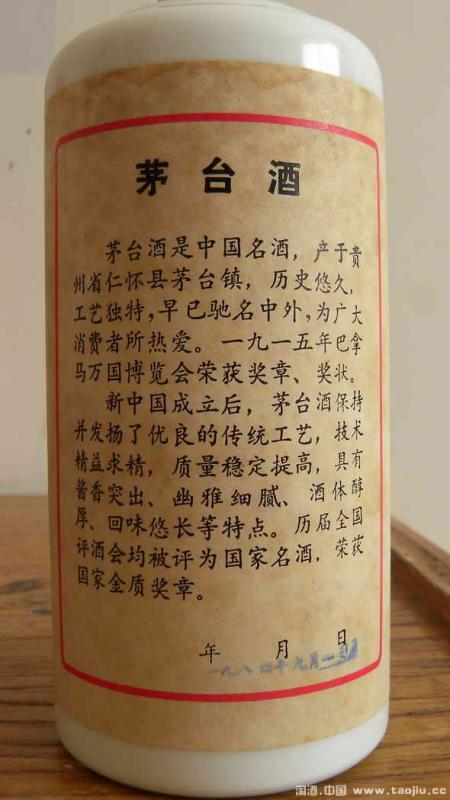 茅台酒
茅台酒是中国名酒，产于贵
州省仁怀县茅台镇，历史悠久，
工艺独特，早已驰名中外，为广大
消费者所热爱。一九一五年巴拿
马万国博览会荣获奖章、奖状。
新中国成立后，茅台酒保持
并发扬了优良的传统工艺，技术
精益求精，质量稳定提高，具有
酱香突出、幽雅细腻、酒体醇
厚、回味悠长等特点。历届全国
评酒会均被评为国家名酒，荣获
国家金质奖章。
年 月 日
一九八四年九月一
淘酒.中国 www.taojiu.cc